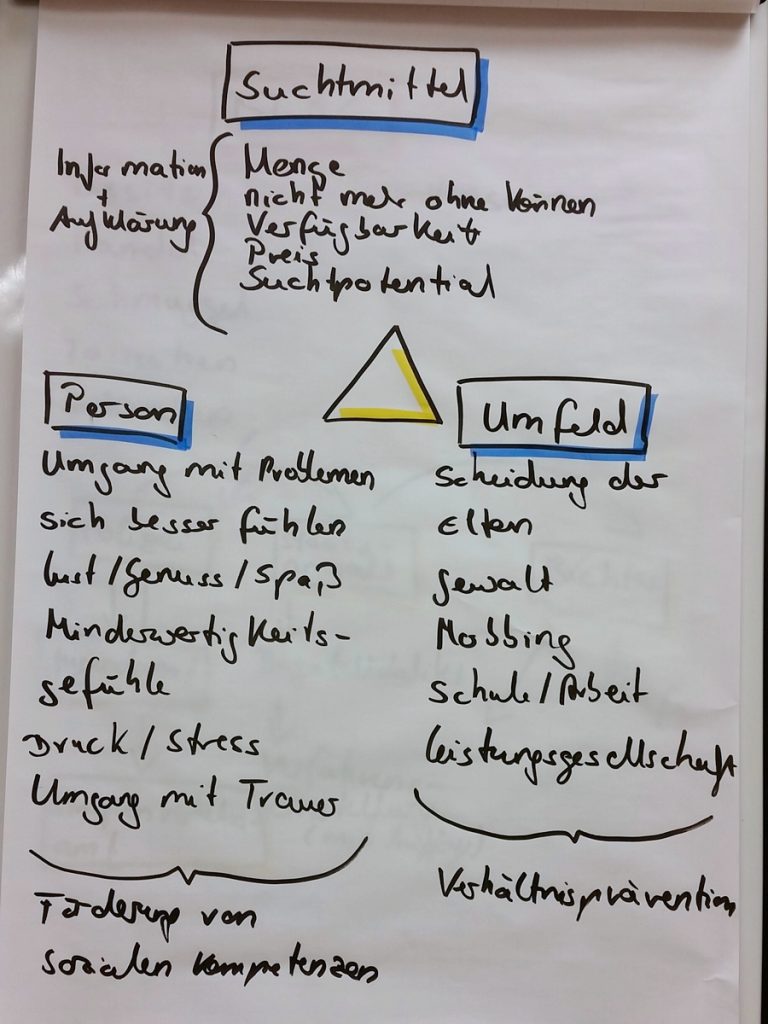 Suchtmittel
Information
+
Aufklärung
Menge
nicht mehr ohne können
Verfügbarkeit
Preis
Suchtpotential
Person
Umgang mit Problemen
sich besser fühlen
Lust/Genuss/Spaß
Minderwertigkeits-
gefühle
Druck/Stress
Umgang mit Trauer
Förderung von
sozialen Kompetenzen
Umfeld
Scheidung der
Eltern
Gewalt
Mobbing
Schule/Arbeit
Leistungsgesellschaft
Verhältnisprävention